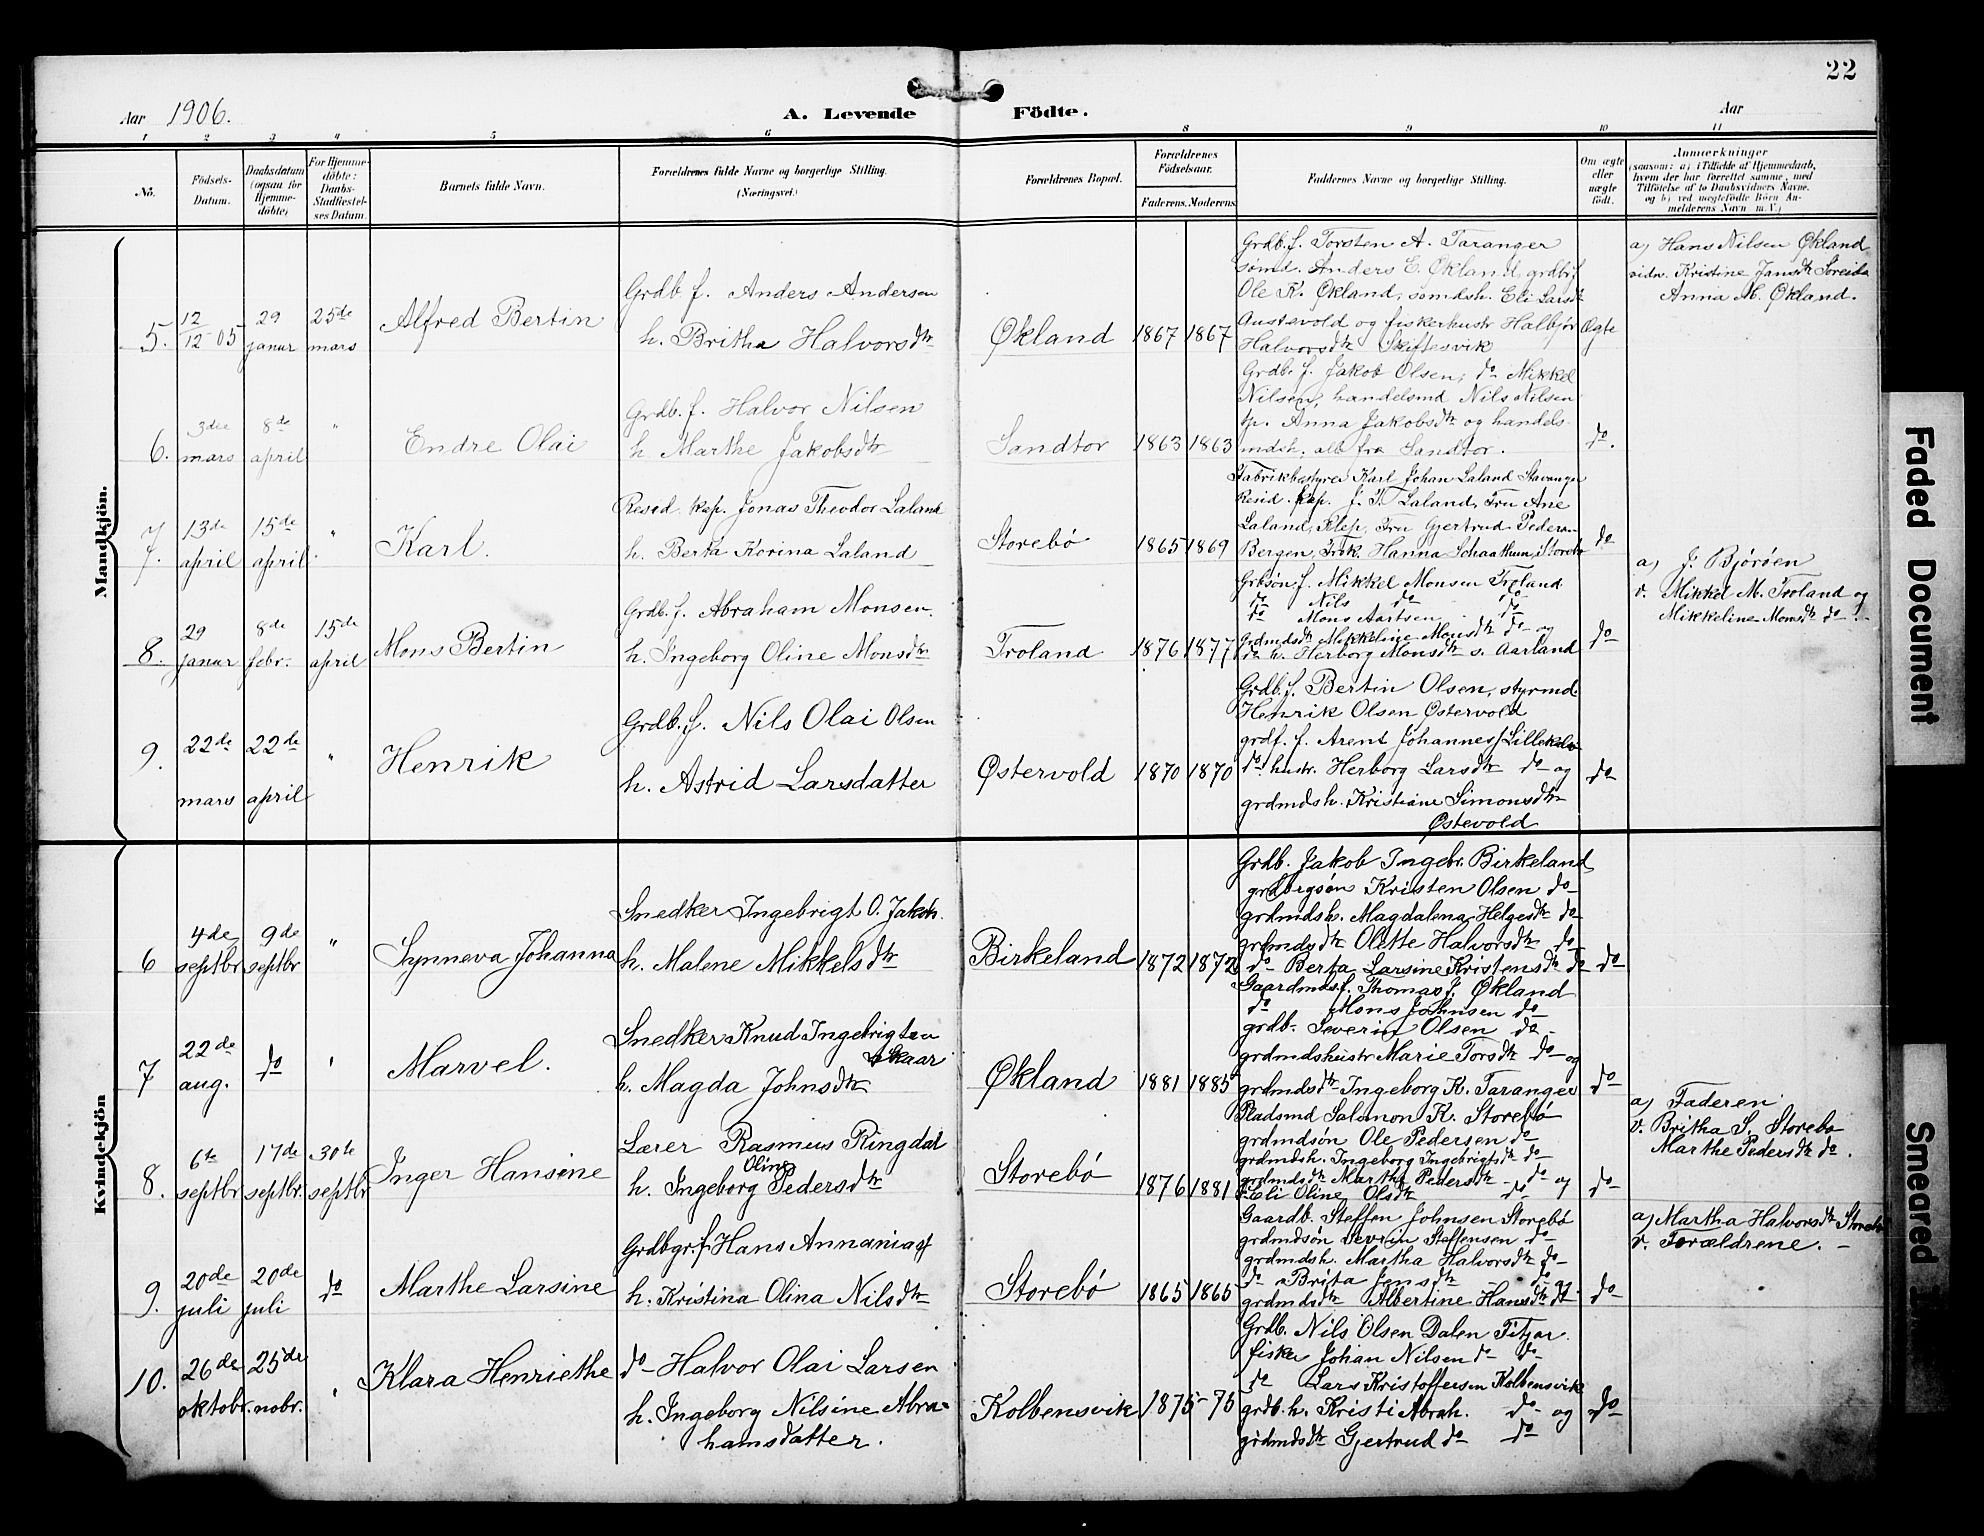 22
Aar 1906. A. Levende Födte. Aar
1 2 3 4 5 6 8 9 10 11
No.
Födsels-
Datum.
Daabsdatum
(ogsaa for
Hjemme-
döbte)
For Hjemme-
döbte:
Daabs-
Stadfæstel-
ses Datum.
Barnets fulde Navn.
Forældrenes fulde Navne og borgerlige Stilling.
(Næringsvei.)
Forældrenes Bopæl.
Forældrenes
Födselsaar.
Faderens. Moderens.
Faddernes Navne og borgerlige Stilling.
Om ægte
eller
uægte
födt.
Anmærkninger
(saasom: a) i Tilfælde af Hjemmedaab,
hvem der har forrettet samme, med
Tilföielse af to Daabsvidners Navne.
og b) ved uægtefödte Börn An-
melderens Navn m. V.)
Mandkjön.
5. 12/12 05
29 januar
25de mars
Alfred Bertin
Grdb. f. Anders Andersen
h. Britha Halvorsdtr
Økland
1867 1867
Grdb. f. Torsten A. Taranger
sømd. Anders E. Økland, grdb. f.
Ole K. Økland, sømdsh. Eli Larsdtr
Austevold og fiskerhustr Halbjør
Halvorsdtr Skiftesvik
Ægte
a) Hans Nilsen Økland
vidn. Kristine Jansdtr Soreide
Anna M. Økland.
6. 3die mars
8de april
"
Endre Olai
Grdb. f. Halvor Nilsen
h. Marthe Jakobsdtr
Sandtor
1863 1863
Grdb. f. Jakob Olsen, do Mikkel
Nilsen, handelsmd Nils Nilsen
tp. Anna Jakobsdtr og handels-
mdsh. alb fra Sandtor.
do.
7. 13de april
15de april
"
Karl.
Resid. kap. Jonas Theodor Laland
h. Berta Korina Laland
Storebö
1865 1869
Fabrikbestyrer Karl Johan Laland Stavanger
Resid. kap. J. T. Laland, Fru Ane
Laland, Klep, Fru Gjertrud Pedersen
Bergen, Frøk. Hanna Schaathun, Storebø
do
8. 29 januar
8de febr.
15de april
Mons Bertin
Grdb. f. Abraham Monsen.
h. Ingeborg Oline Monsdtr
Troland
1876 1877
Grbsön f. Mikkel Monsen Troland
do Nils do do
do Mons Aartsen do
Grdmdsdtr Mikkeline Monsdtr do og
do h. Herborg Monsdtr s. Aarland
do
a) J. Bjørøen
v. Mikkel M. Troland og
Mikkeline Monsdtr do.
9. 22de mars
22de april
"
Henrik
Grdb. f. Nils Olai Olsen
h. Astrid Larsdatter
Østervold
1870 1870
Grdb. f. Bertin Olsen, styrmd.
Henrik Olsen Østervold
grdf. f. Arent Johannes Lillekalv
do hustr. Herborg Larsdtr do og
grdmdsh. Kristiane Simonsdtr
Østevold
do
Kvindekjön
6 4de septbr
9de septbr
"
Synneva Johanna
Snedker Ingebrigt O. Jakob.
h. Malene Mikkelsdtr
Birkeland
1872 1872
Grdb. Jakob Ingebr. Birkeland
grdbrgsön Kristen Olsen do
grdmdsh. Magdalena Helgesdtr do
grdmdsdtr Olette Halvorsdtr do
do Berta Larsine Kristensdtr do
do
7 22de aug.
do
"
Marvel.
Snedker Knud Ingebrigtsen
Skaar
h. Magda Johnsdtr
Økland
1881 1885
Gaardmds f. Thomas J. Økland
do Mons Johnsen do
grdb. Severin Olsen do
grdmdshustr Marie Torsdtr do og
grdmdsdtr Ingeborg K. Taranger
do
8. 6te septbr
17de septbr.
30te septbr
Inger Hansine
Lærer Rasmus Ringdal
h. Ingeborg Oline Pedersdtr
Storebö
1876 1881
Pladsmd Salomon K. Storebö
grdmdsön Ole Pedersen do
grdmdsh. Ingeborg Ingebrigtsdtr do
grdmdsdtr Martha Pedersdtr do og
Eli Oline Olsdtr do
do
a) Faderen
v. Britha S. Storebø
Marthe Pedersdtr do.
9. 20de juli
20de juli
do
Marthe Larsine
Grdbgr. f. Hans Annanias
h. Kristina Olina Nilsdtr
Storebö
1865 1865
Gaardb. Steffen Johnsen Storebö
grdmdsön Severin Steffensen do
grdmdsh. Martha Halvorsdtr do
do Brita Jensdtr do
grdmdsdtr Albertine Hansdtr dt
do
a) Martha Halvorsdtr Storebø
v. Forældrene.
10. 26de oktobr.
25de nobr.
"
Klara Henriethe
do Halvor Olai Larsen
h. Ingeborg Nilsine Abra-
hamsdatter.
Kolbensvik
1875-75
Grdb. Nils Olsen Dalen Fitjar.
fisker Johan Nilsen do do
do Lars Kristoffersen Kolbensvik
grdb. h. Kristi Abrah. do og
grdmdsdtr Gjertrud do do
do
Faded Document
Smeared